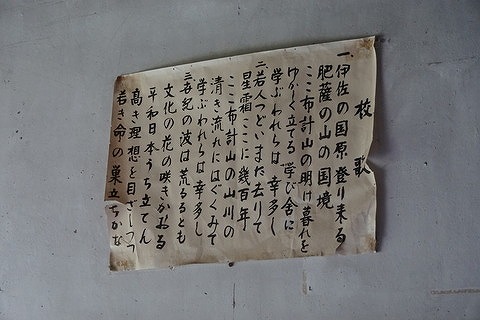 校歌
一、伊佐の国原登り来る
肥薩の山の国境
ここ布計山の明け暮れを
ゆかしく立てる学び舎に
学ぶわれらは幸多し
二、若人つどいまた去りて
星霜ここに幾百年
ここ布計山の山川の
清き流れにはぐくみて
学ぶわれらは幸多し
三、世紀の波は荒るるとも
文化の花の咲きかおる
平和日本うち立てん
高き理想を目ざしつつ
若き命の巣立ちかな